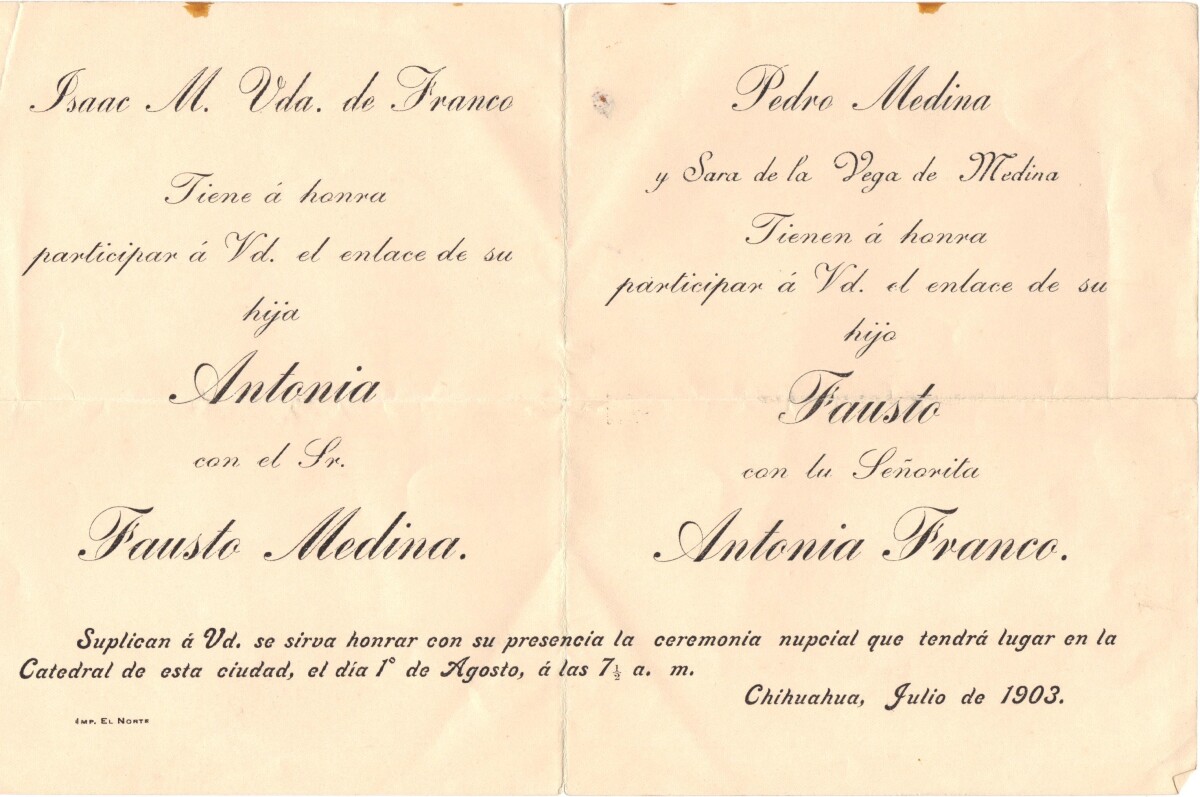 Isaac M. Vda. de Franco
Tiene á honra
participar á Vd. el enlace de su
hija
Antonia
con el Sr.
Fausto Medina.
Pedro Medina
y Sara de la Vega de Medina
Tienen á honra
participar á Vd. el enlace de su
hijo
Fausto
con la Señorita
Antonia Franco.
Suplican á Vd. se sirva honrar con su presencia la ceremonia nupcial que tendrá lugar en la
Catedral de esta ciudad, el día 1° de Agosto, á las 7½ a. m.
Chihuahua, Julio de 1903.
IMP. EL NORTE